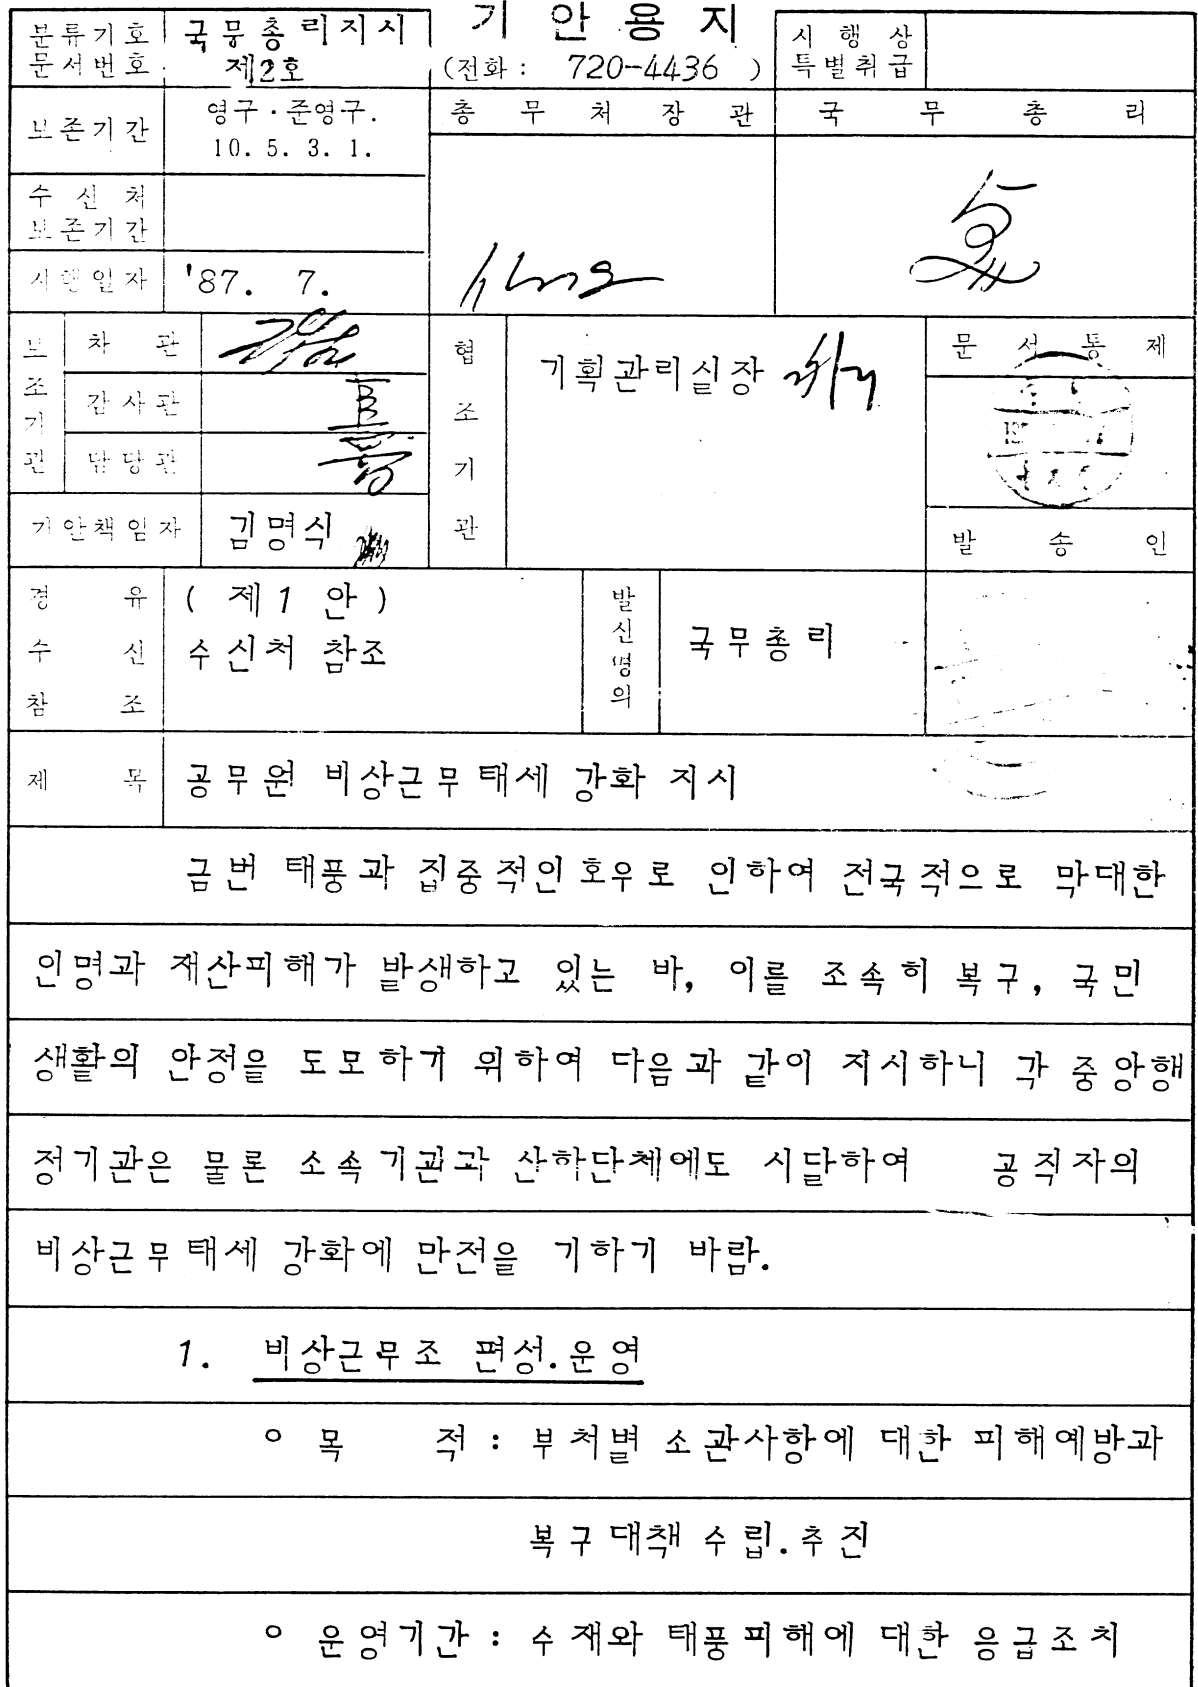 기 안 용 지
분류기호 국무총리지시
문서번호. 제2호
(전화 : 720-4436 )
시 행 상
특별취급
보존기간 영구 · 준영구.
10. 5. 3. 1.
총 무 처 장 관
국 무 총 리
수 신 처
보존기간
시행일자 '87. 7.
보조기관
차 관
감사관
담당관
기안책임자 김명식
협조기관
기획관리실장
문 서 통 제
발 송 인
경 유 ( 제1 안 )
수 신 수신처 참조
참 조
발신명의 국무총리
제 목 공무원 비상근무태세 강화 지시
금번 태풍과 집중적인호우로 인하여 전국적으로 막대한
인명과 재산피해가 발생하고 있는 바, 이를 조속히 복구, 국민
생활의 안정을 도모하기 위하여 다음과 같이 지시하니 각 중앙행
정기관은 물론 소속기관과 산하단체에도 시달하여 공직자의
비상근무태세 강화에 만전을 기하기 바람.
1. 비상근무조 편성.운영
o 목 적 : 부처별 소관사항에 대한 피해예방과
복구대책 수립.추진
o 운영기간 : 수재와 태풍피해에 대한 응급조치